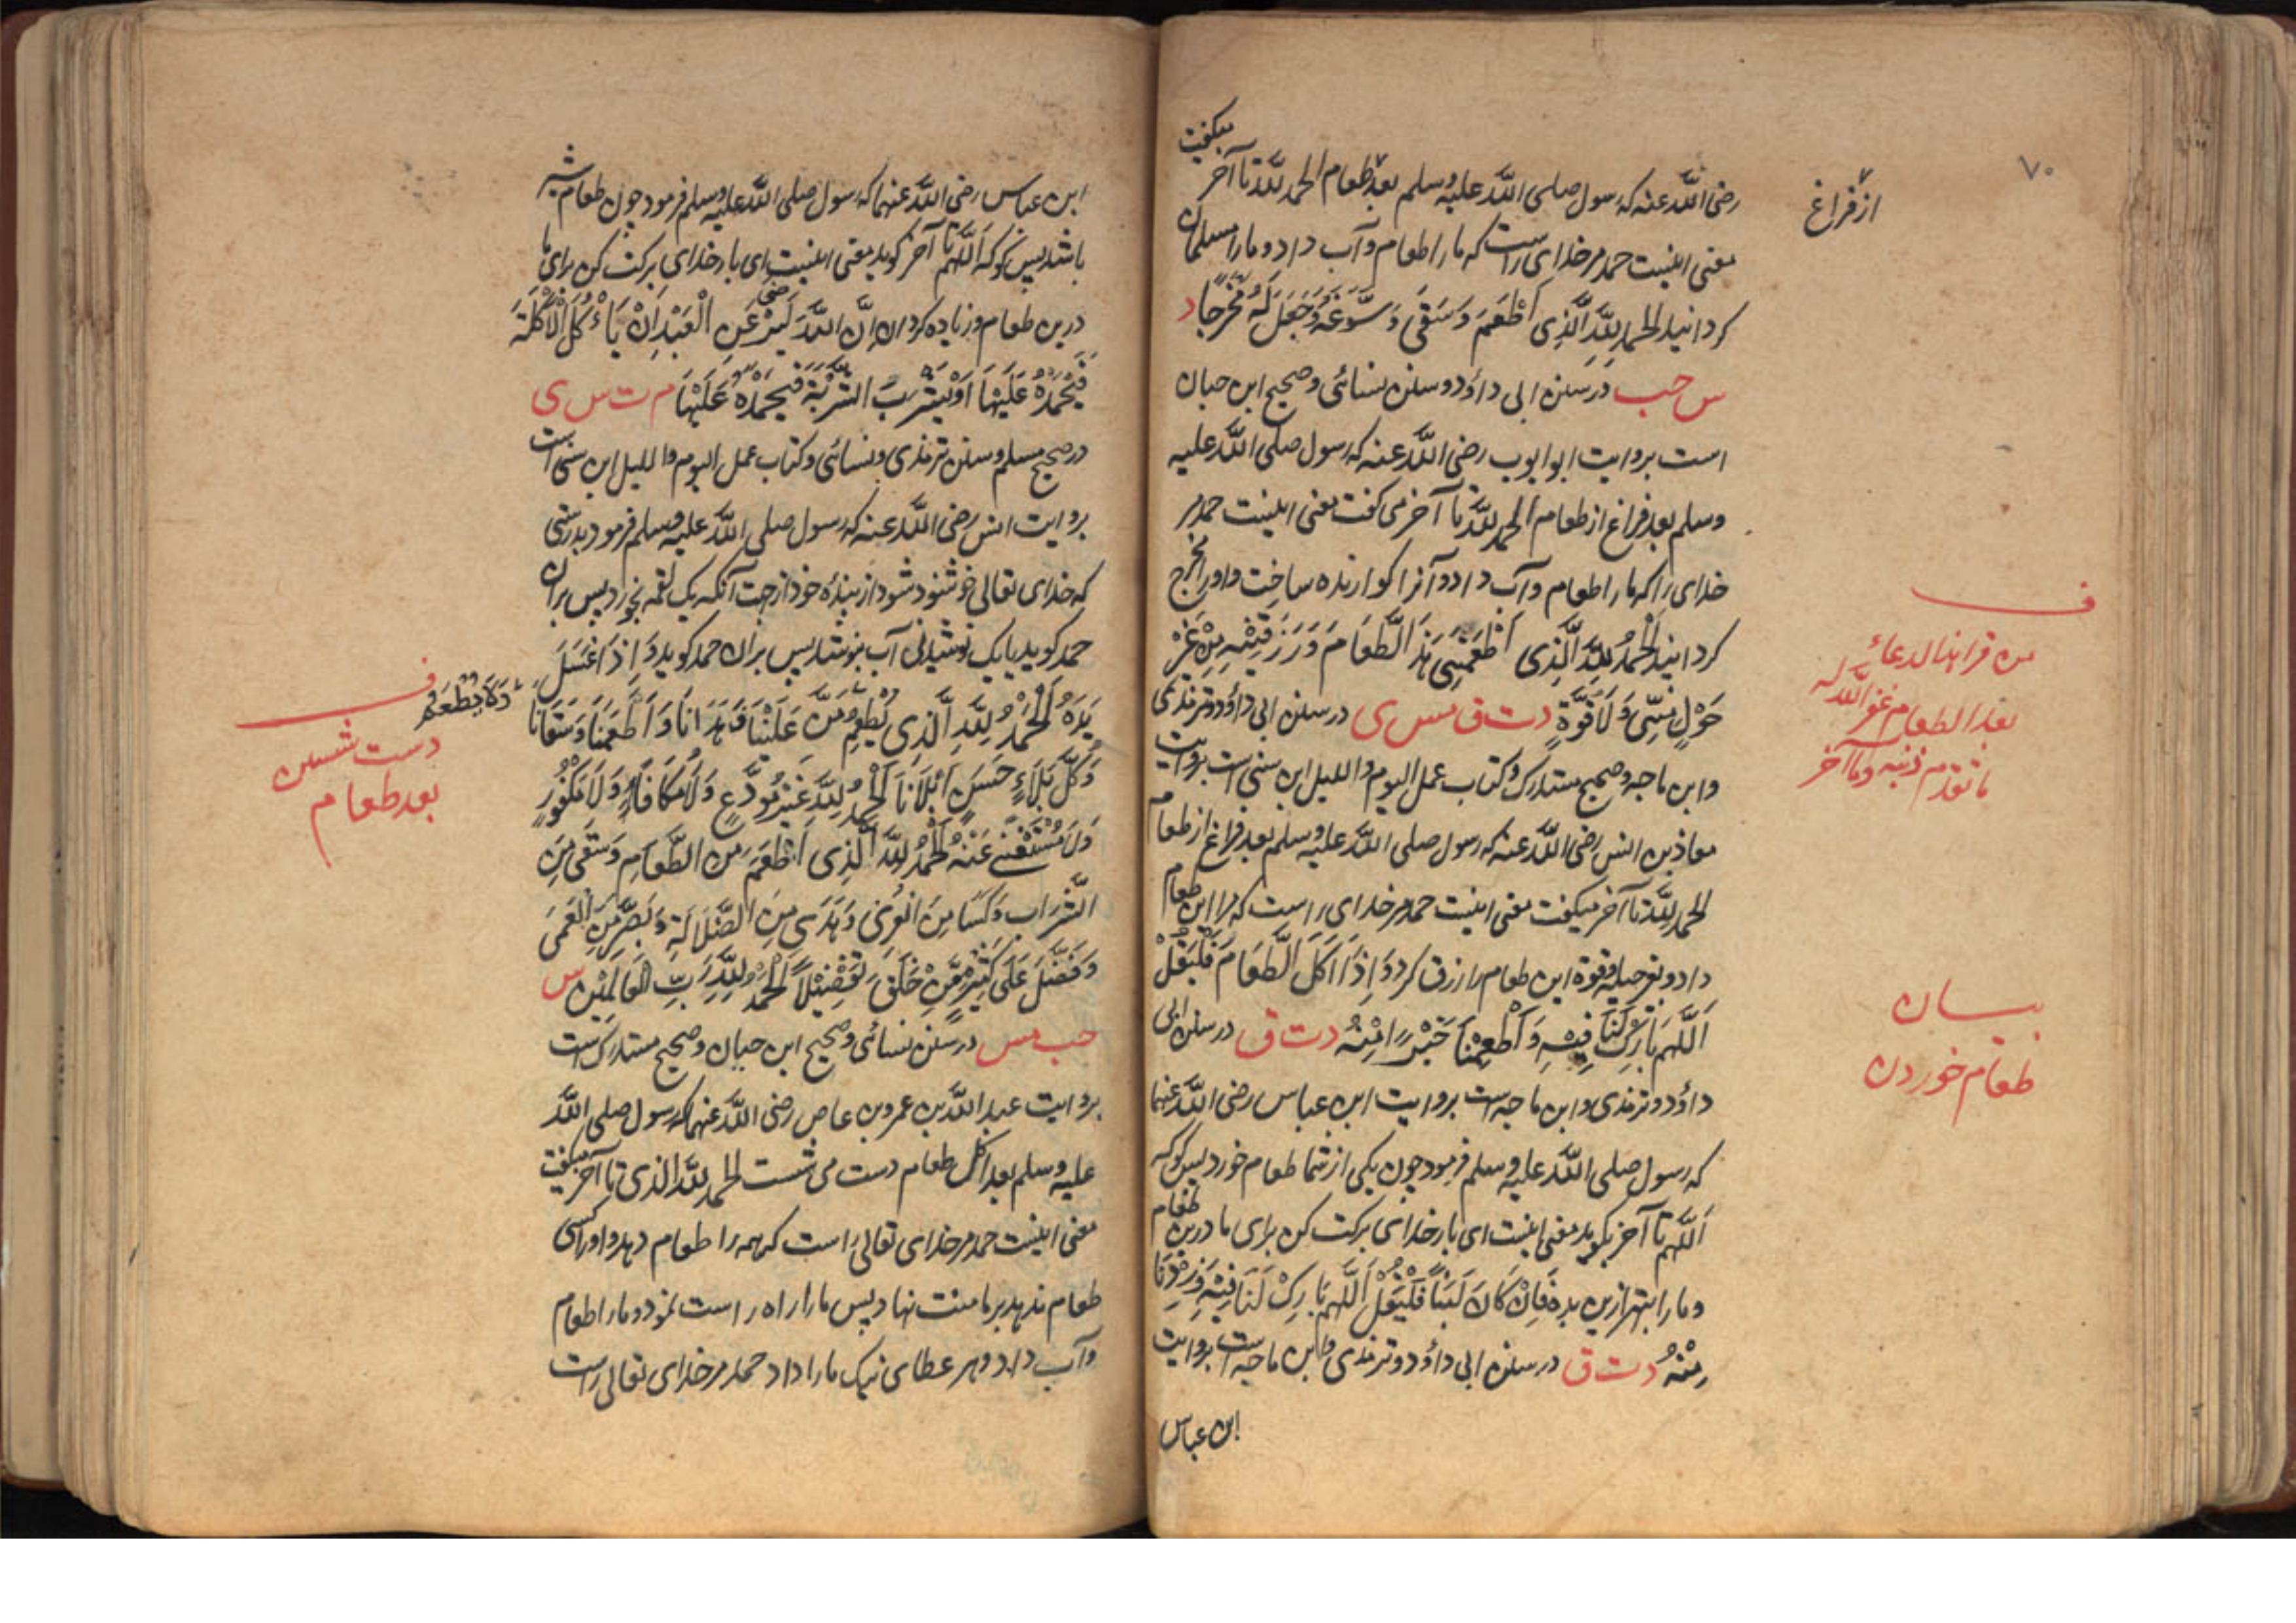 ۷۰
رضی اللّٰہ عنہ کہ رسول صلی اللّٰہ علیہ وسلم بعد طعام الحمد للّٰہ تا آخر میکفت
از فراغ
معنی اینست حمد مر خدای راست کہ ما را طعام و آب داد و ما را مسلمان
کردانید الحمد لِلّٰہِ الَّذِی اَطْعَمَ وَسَقٰی وَسَوَّغَہُ وَجَعَلَ لَہُ مَخْرَجًا د
س حب در سنن ابی داؤد و سنن نسائی و صحیح ابن حبان
است بروایت ابو ایوب رضی اللّٰہ عنہ کہ رسول صلی اللّٰہ علیہ
وسلم بعد فراغ از طعام الحمد للّٰہ تا آخر می کفت معنی اینست حمد مر
خدای را کہ ما را طعام و آب داد و آنرا کوارندہ ساخت و او را مخرج
کردانید اَلْحَمْدُ لِلّٰہِ الَّذِی اَطْعَمَنِی ہٰذَا الطَّعَامَ وَرَزَقَنِیْہِ مِنْ غَیْرِ
حَوْلٍ مِنِّی وَلَا قُوَّۃٍ د ت ق مس ی در سنن ابی داؤد و ترمذی
وابن ماجہ و صحیح مستدرک و کتاب عمل الیوم واللیل ابن سنی است بروایت
معاذ بن انس رضی اللّٰہ عنہ کہ رسول صلی اللّٰہ علیہ وسلم بعد فراغ از طعام
الحمد للّٰہ تا آخر میکفت معنی اینست حمد مر خدای راست کہ مرا این طعام
داد و بغیر حیلہ و قوۃ این طعام را رزق کرد وَاِذَا اَکَلَ الطَّعَامَ فَلْیَقُلْ
اَللّٰہُمَّ بَارِکْ لَنَا فِیْہِ وَاَطْعِمْنَا خَیْرًا مِنْہُ د ت ق در سنن ابی
داؤد و ترمذی وابن ماجہ است بروایت ابن عباس رضی اللّٰہ عنہما
کہ رسول صلی اللّٰہ علیہ وسلم فرمود چون یکی از شما طعام خورد پس کو کہ
اَللّٰہم تا آخر بکوید معنی اینست ای بار خدای برکت کن برای ما درین طعام
و ما را بہتر ازین بدہ فَاِنْ کَانَ لَبَنًا فَلْیَقُلْ اَللّٰہُمَّ بَارِکْ لَنَا فِیْہِ وَزِدْنَا
مِنْہُ د ت ق در سنن ابی داؤد و ترمذی وابن ماجہ است بروایت
ابن عباس
ف
من قرا ہذا الدعاء
بعد الطعام غفر اللّٰہ لہ
ما تقدم ذنبہ وما آخر
بیان
طعام خوردن
ابن عباس رضی اللّٰہ عنہما کہ رسول صلی اللّٰہ علیہ وسلم فرمود چون طعام شیر
باشد پس کو کہ اَللّٰہم تا آخر کوید معنی اینست ای بار خدای برکت کن برای ما
درین طعام و زیادہ کردان اِنَّ اللّٰہَ لَیَرْضٰی عَنِ الْعَبْدِ اَنْ یَاْکُلَ الْاَکْلَۃَ
فَیَحْمَدُہُ عَلَیْہَا اَوْ یَشْرَبَ الشَّرْبَۃَ فَیَحْمَدُہُ عَلَیْہَا م ت س ی
در صحیح مسلم و سنن ترمذی و نسائی و کتاب عمل الیوم واللیل ابن سنی است
بروایت انس رضی اللّٰہ عنہ کہ رسول صلی اللّٰہ علیہ وسلم فرمود بدرستی
کہ خدای تعالی خوشنود شود از بندۂ خود از جہت آنکہ یک لقمہ بخورد پس بران
حمد کوید یا یک نوشیدنی آب بنوشد پس بران حمد کوید وَاِذَا غَسَلَ
یَدَہُ اَلْحَمْدُ لِلّٰہِ الَّذِی یُطْعِمُ وَلَا یُطْعَمُ مَنَّ عَلَیْنَا فَہَدَانَا وَاَطْعَمَنَا وَسَقَانَا
وَکُلَّ بَلَاءٍ حَسَنٍ اَبْلَانَا اَلْحَمْدُ لِلّٰہِ غَیْرَ مُوَدَّعٍ وَلَا مُکَافَاٍ وَلَا مَکْفُوْرٍ
وَلَا مُسْتَغْنًی عَنْہُ اَلْحَمْدُ لِلّٰہِ الَّذِی اَطْعَمَ مِنَ الطَّعَامِ وَسَقٰی مِنَ
الشَّرَابِ وَکَسَا مِنَ الْعُرْیِ وَہَدٰی مِنَ الضَّلَالَۃِ وَبَصَّرَ مِنَ الْعَمٰی
وَفَضَّلَ عَلٰی کَثِیْرٍ مِمَّنْ خَلَقَ تَفْضِیْلًا اَلْحَمْدُ لِلّٰہِ رَبِّ الْعَالَمِیْنَ س
حب مس در سنن نسائی و صحیح ابن حبان و صحیح مستدرک است
بروایت عبد اللّٰہ بن عمرو بن عاص رضی اللّٰہ عنہما کہ رسول صلی اللّٰہ
علیہ وسلم بعد اکل طعام دست می شست الحمد للّٰہ الذی تا آخر میکفت
معنی اینست حمد مر خدای تعالی راست کہ ہمہ را طعام دہد و او را کسی
طعام ندہد بر ما منت نہاد پس ما را راہ راست نمود و ما را طعام
و آب داد و ہر عطای نیک ما را داد حمد مر خدای تعالی راست
ف
دست شستن
بعد طعام